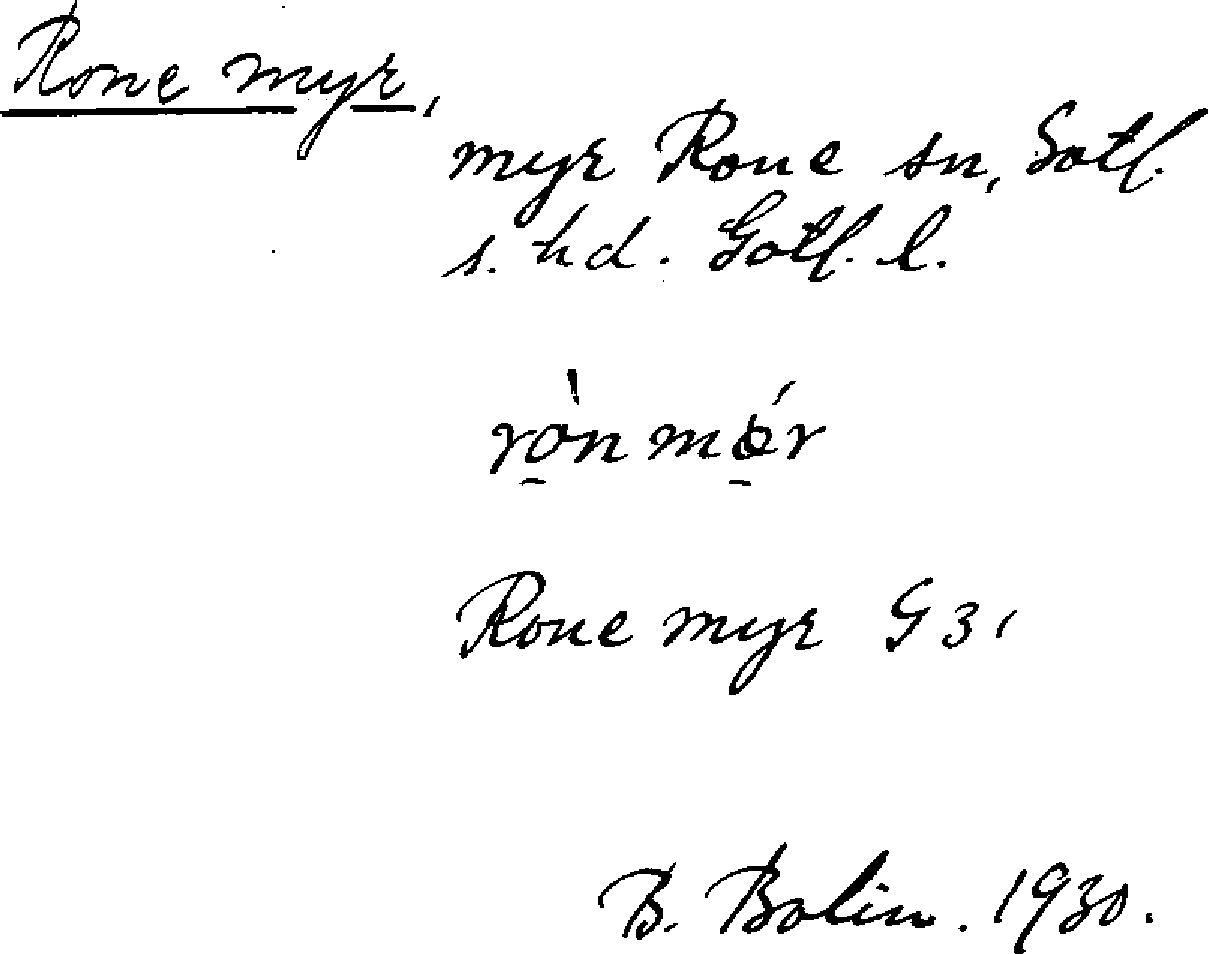 Rone myr,
myr Rone sn, Gotl.
s. hd. Gotl. l.
Rone myr G 31
B. Bolin. 1930.